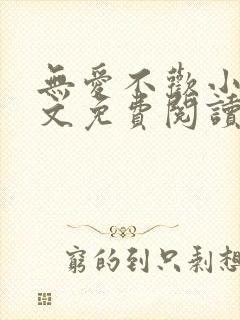 無愛不歡小
文免費閱讀
窮的到只剩想